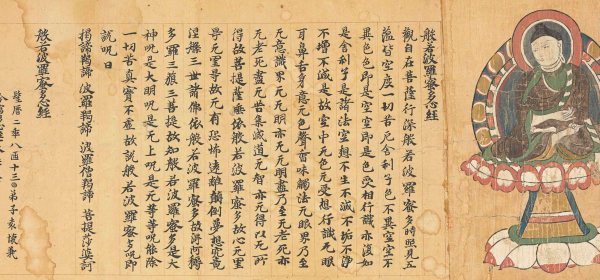 般若波羅蜜多心經
觀自在菩薩行深般若波羅蜜多時照見五
蘊皆空度一切苦厄舍利子色不異空空不
異色色即是空空即是色受相行識亦復如
是舍利子是諸法空想不生不滅不垢不淨
不增不減是故空中无色无受想行識无眼
耳鼻舌身意无色聲香味觸法无眼界乃至
无意識界无无明亦无无明盡乃至无老死亦
无老死盡无苦集滅道无智亦无得以无所
得故菩提薩埵依般若波羅蜜多故心无罣
导无罣导故无有恐怖遠離顛倒夢想究竟
涅槃三世諸佛依般若波羅蜜多故得阿耨
多羅三藐三菩提故知般若波羅蜜多是大
神呪是大明呪是无上呪是无等等呪能除
一切苦真實不虛故說般若波羅蜜多呪即
說呪曰
揭諦揭諦 波羅揭諦 波羅僧揭諦 菩提莎婆訶
般若波羅蜜多心經
聖曆二年八月十三日弟子袁懷義